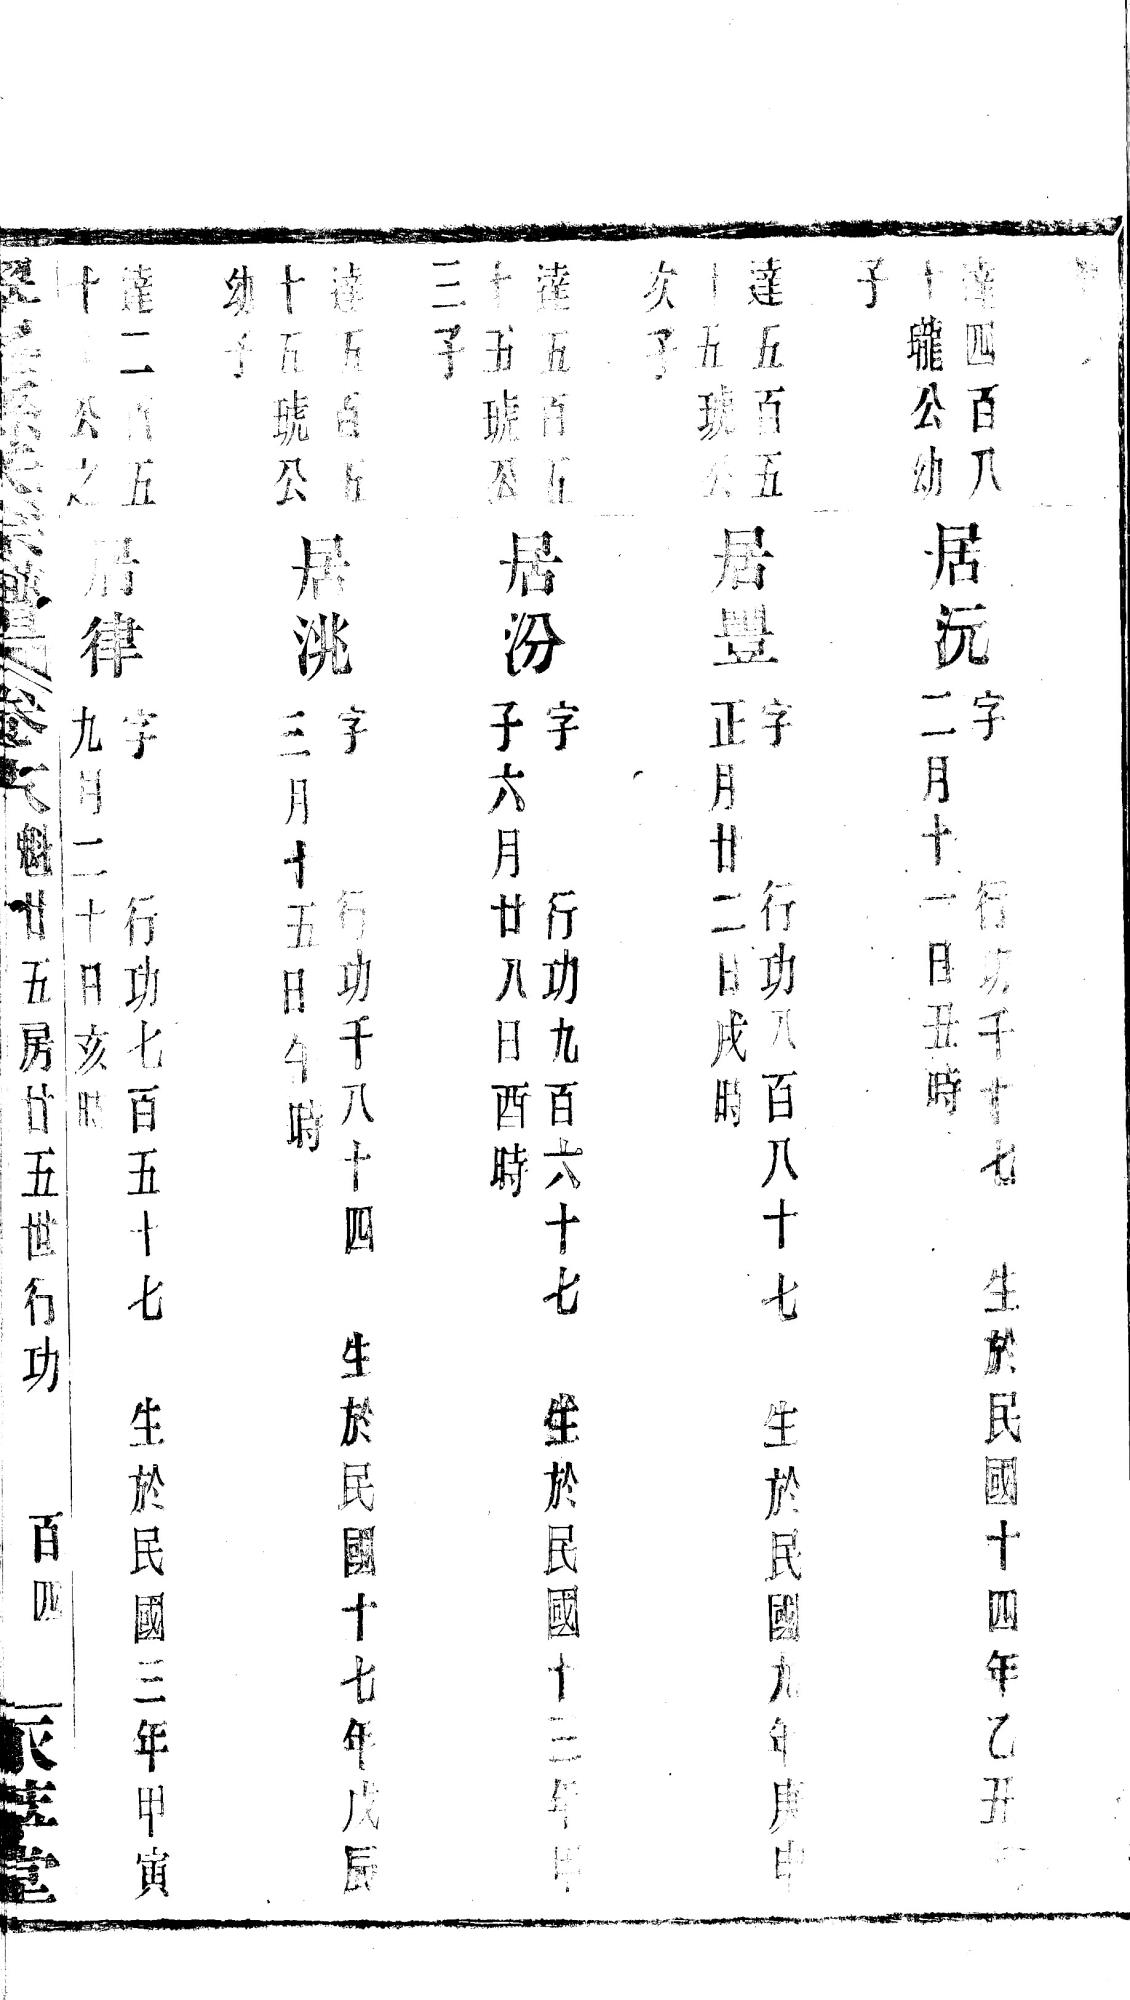 達四百八
十瓏公幼
子
居沅
字 行功千十七 生於民國十四年乙丑
二月十一日丑時
達五百五
十五琥公
次子
居豐
字 行功八百八十七 生於民國九年庚申
正月廿二日戌時
達五百五
十五琥公
三子
居汾
字 行功九百六十七 生於民國十三年甲
子六月廿八日酉時
達五百五
十五琥公
幼子
居洮
字 行功千八十四 生於民國十七年戊辰
三月十五日午時
達二百五
十 公之
居律
字 行功七百五十七 生於民國三年甲寅
九月二十日亥時
卷 魁廿五房廿五世行功 百四 堂